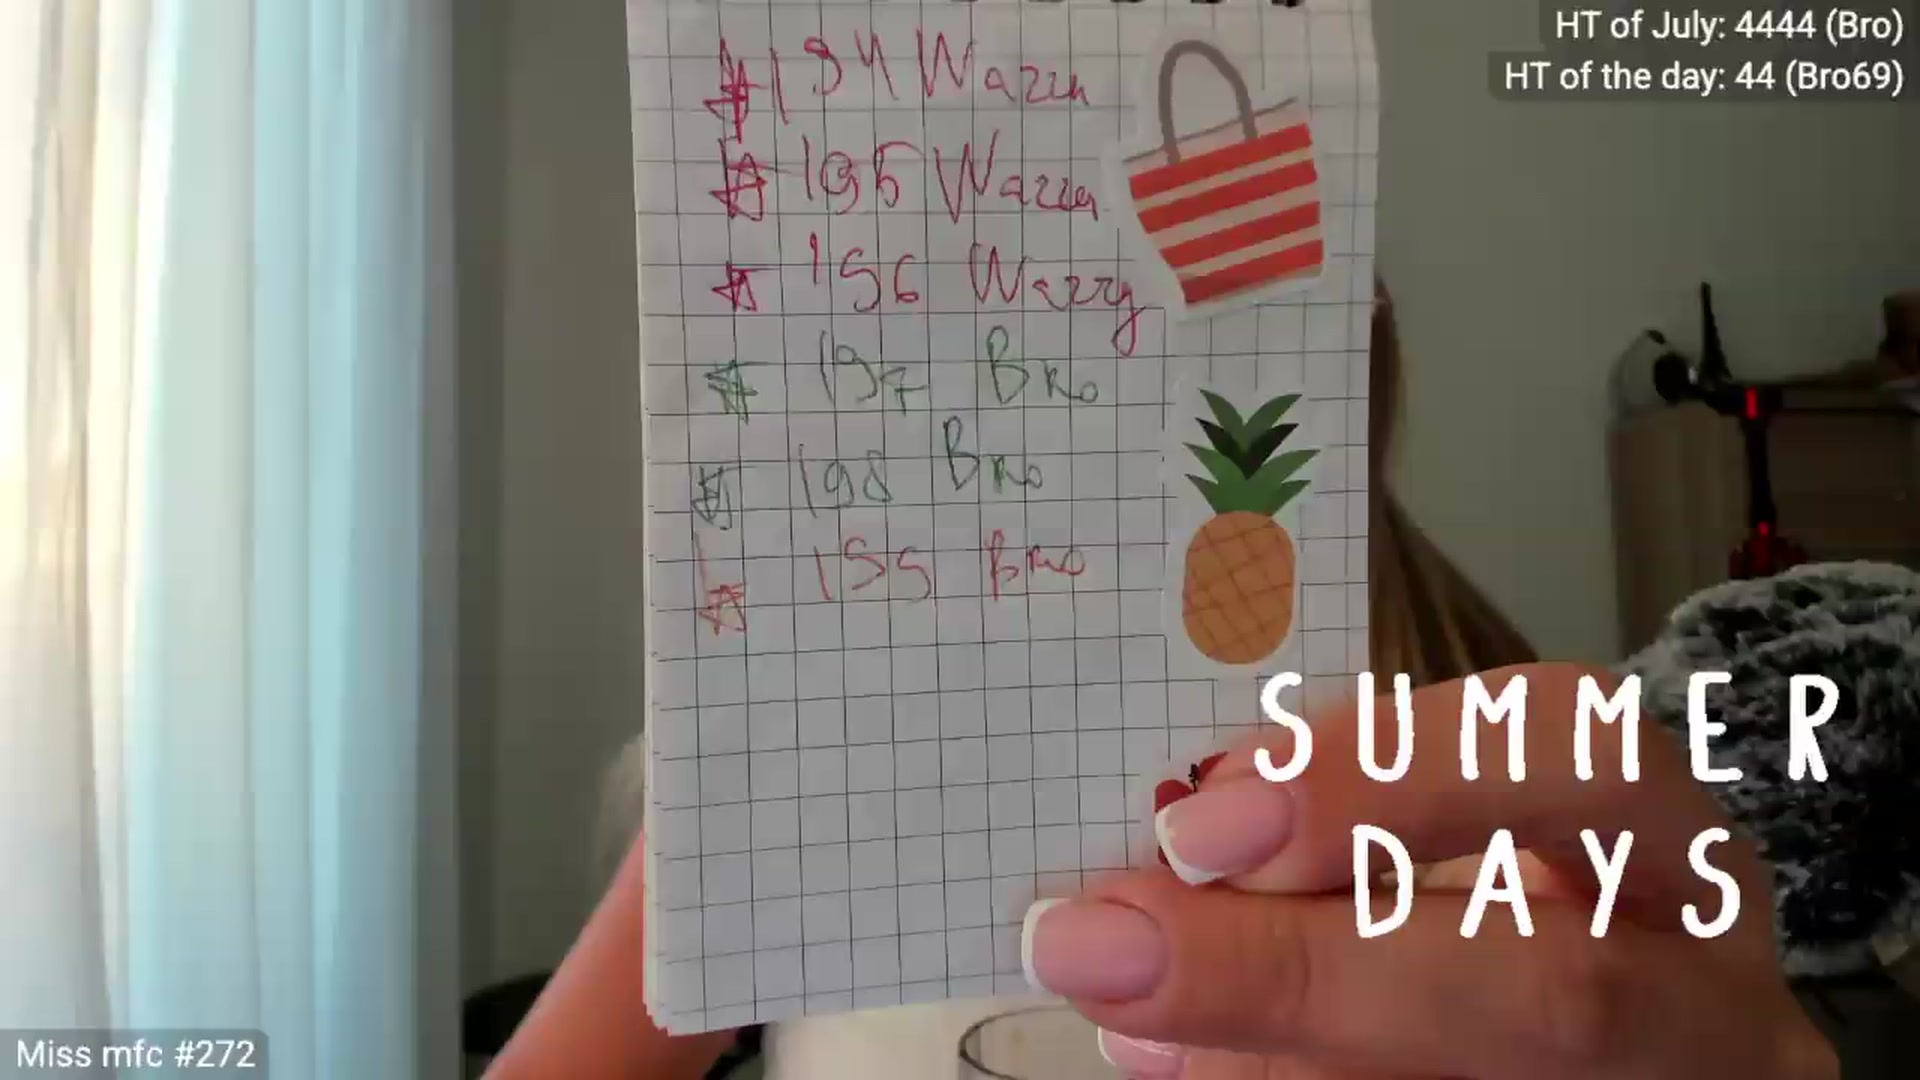 HT of July: 4444 (Bro)
HT of the day: 44 (Bro69)
194 Wazzy
195 Wazzy
196 Wazzy
197 Bro
198 Bro
199 Bro
SUMMER
DAYS
Miss mfc #272